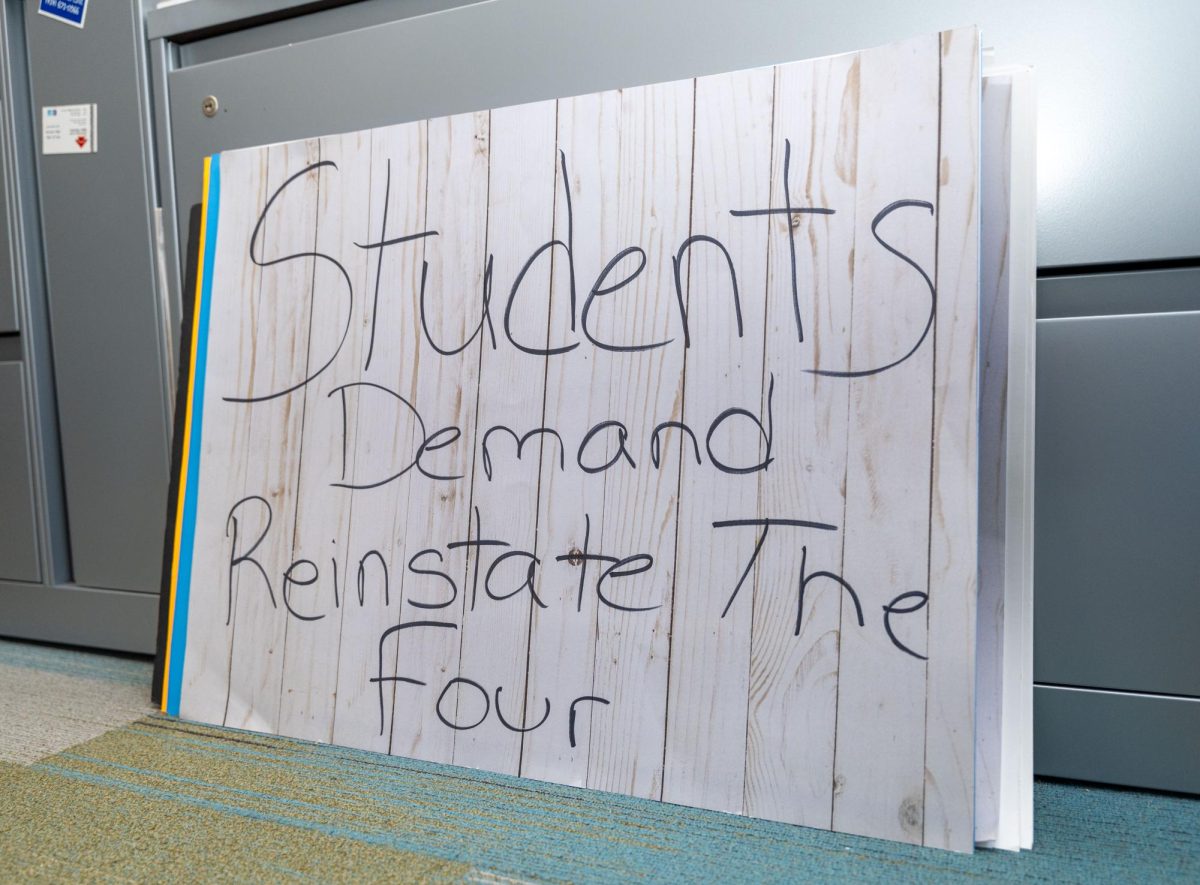 Students
Demand
Reinstate The
Four